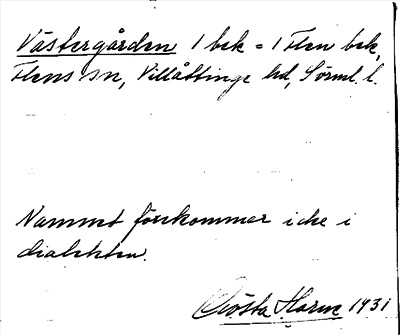 Västergården 1 bek = 1 Flen bek,
Flens sn, Villåttinge hd, Sörml. l.
Namnet förekommer icke i
dialekten.
Gösta Harm 1931